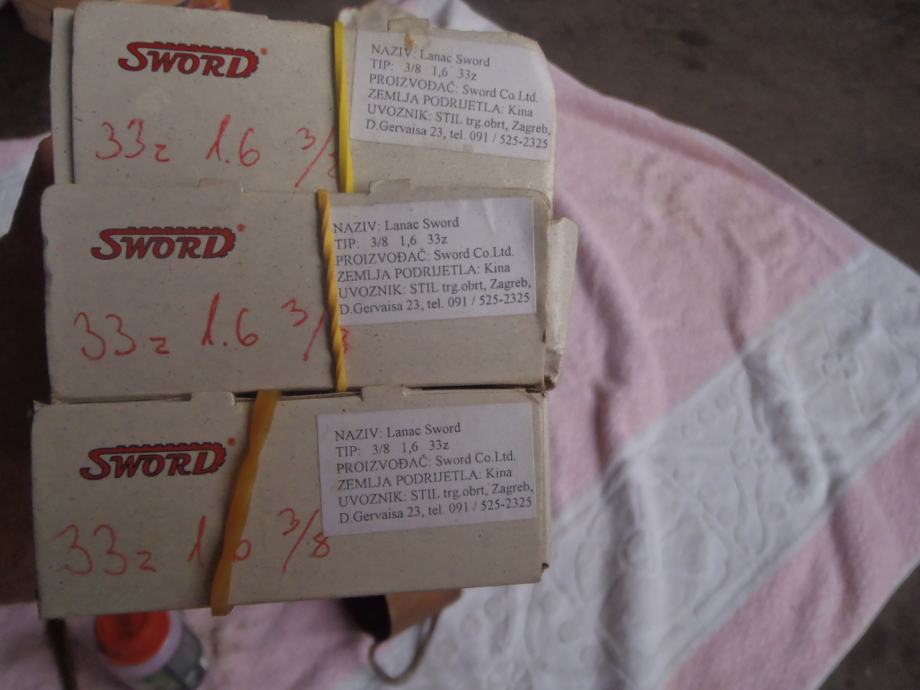 SWORD
33z 1.6 3/
NAZIV: Lanac Sword
TIP: 3/8 1,6 33z
PROIZVOĐAČ: Sword Co.Ltd.
ZEMLJA PODRIJETLA: Kina
UVOZNIK: STIL trg.obrt, Zagreb,
D.Gervaisa 23, tel. 091 / 525-2325
SWORD
33z 1.6 3/
NAZIV: Lanac Sword
TIP: 3/8 1,6 33z
PROIZVOĐAČ: Sword Co.Ltd.
ZEMLJA PODRIJETLA: Kina
UVOZNIK: STIL trg.obrt, Zagreb,
D.Gervaisa 23, tel. 091 / 525-2325
SWORD
33z 1.6 3/8
NAZIV: Lanac Sword
TIP: 3/8 1,6 33z
PROIZVOĐAČ: Sword Co.Ltd.
ZEMLJA PODRIJETLA: Kina
UVOZNIK: STIL trg.obrt, Zagreb,
D.Gervaisa 23, tel. 091 / 525-2325